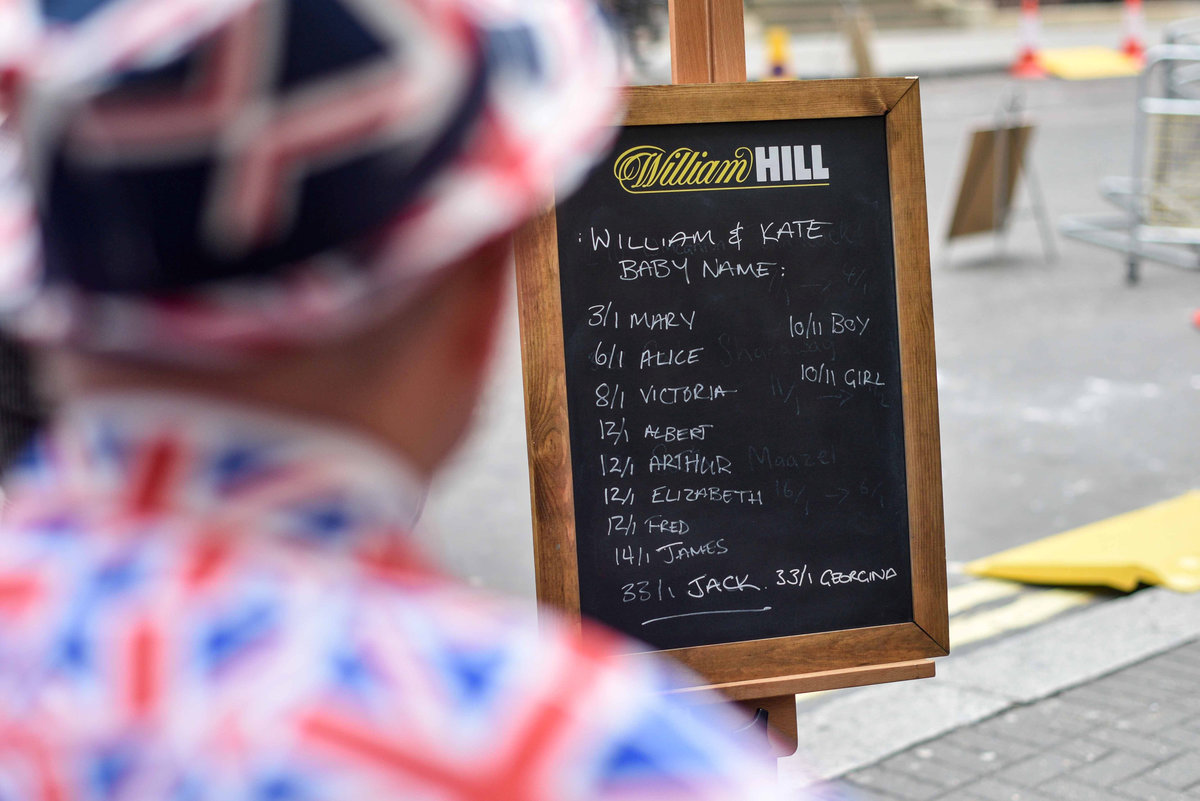 William HILL
: WILLIAM & KATE
BABY NAME:
3/1 MARY
6/1 ALICE
8/1 VICTORIA
12/1 ALBERT
12/1 ARTHUR
12/1 ELIZABETH
12/1 FRED
14/1 JAMES
33/1 JACK.
10/11 BOY
10/11 GIRL
33/1 GEORGINA